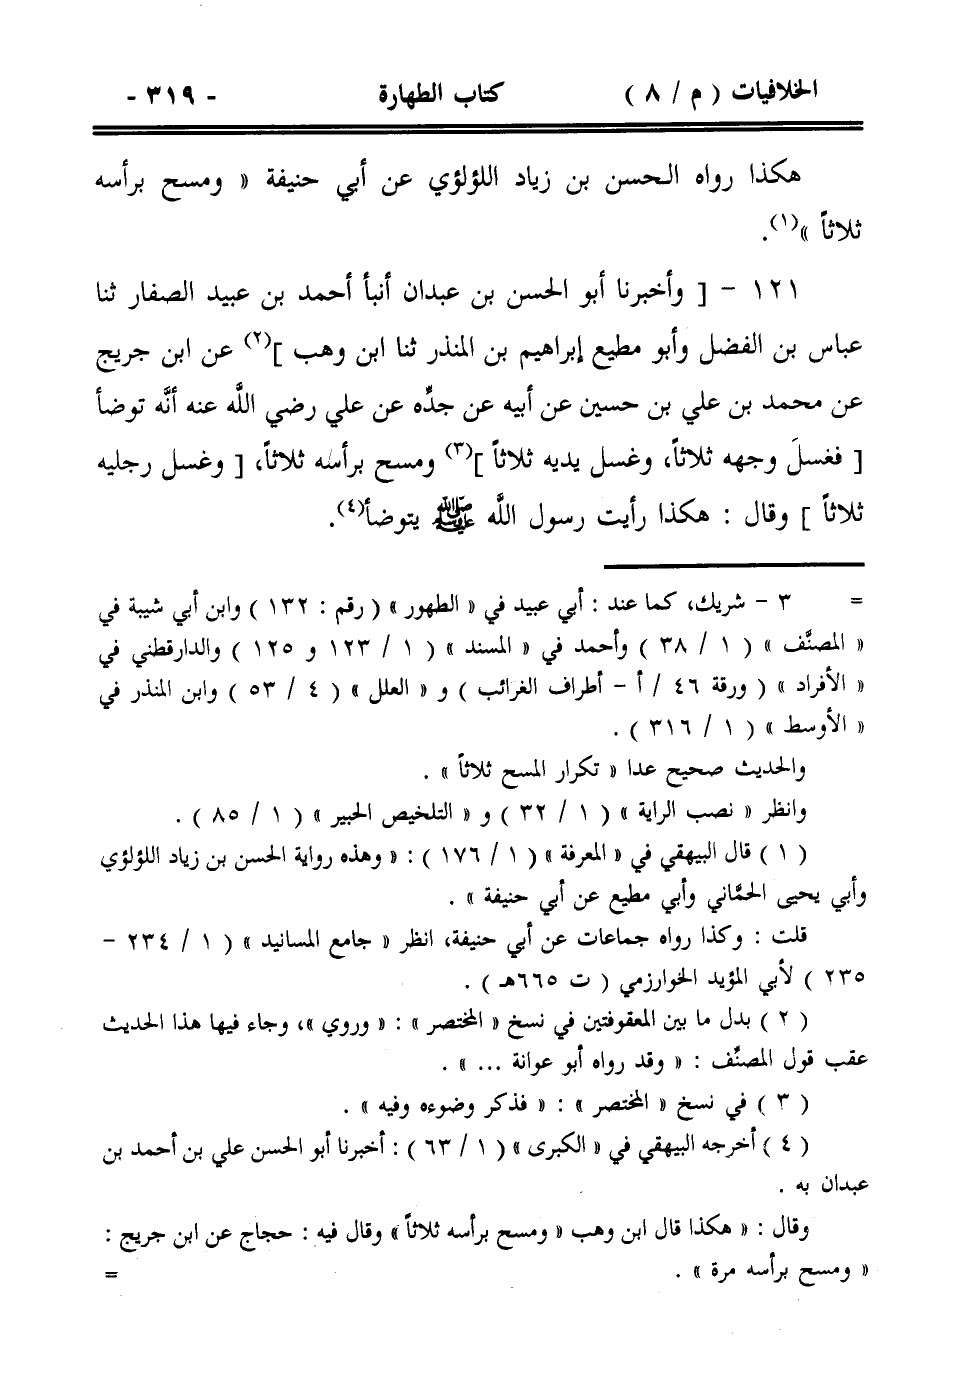 الخلافيات ( م / ٨ ) كتاب الطهارة - ٣١٩ -
هكذا رواه الحسن بن زياد اللؤلؤي عن أبي حنيفة « ومسح برأسه
ثلاثاً »(١).
١٢١ - [ وأخبرنا أبو الحسن بن عبدان أنبأ أحمد بن عبيد الصفار ثنا
عباس بن الفضل وأبو مطيع إبراهيم بن المنذر ثنا ابن وهب ](٢) عن ابن جريج
عن محمد بن علي بن حسين عن أبيه عن جدِّه عن علي رضي اللَّه عنه أنَّه توضأ
[ فغسلَ وجهه ثلاثاً، وغسل يديه ثلاثاً ](٣) ومسح برأسه ثلاثاً، [ وغسل رجليه
ثلاثاً ] وقال : هكذا رأيت رسول اللَّه ﷺ يتوضأ(٤).
= ٣ - شريك، كما عند : أبي عبيد في « الطهور » ( رقم : ١٣٢ ) وابن أبي شيبة في
« المصنَّف » ( ١ / ٣٨ ) وأحمد في « المسند » ( ١ / ١٢٣ و ١٢٥ ) والدارقطني في
« الأفراد » ( ورقة ٤٦ / أ - أطراف الغرائب ) و « العلل » ( ٤ / ٥٣ ) وابن المنذر في
« الأوسط » ( ١ / ٣١٦ ) .
والحديث صحيح عدا « تكرار المسح ثلاثاً » .
وانظر « نصب الراية » ( ١ / ٣٢ ) و « التلخيص الحبير » ( ١ / ٨٥ ) .
( ١ ) قال البيهقي في « المعرفة » ( ١ / ١٧٦ ) : « وهذه رواية الحسن بن زياد اللؤلؤي
وأبي يحيى الحمَّاني وأبي مطيع عن أبي حنيفة » .
قلت : وكذا رواه جماعات عن أبي حنيفة، انظر « جامع المسانيد » ( ١ / ٢٣٤ -
٢٣٥ ) لأبي المؤيد الخوارزمي ( ت ٦٦٥هـ ) .
( ٢ ) بدل ما بين المعقوفتين في نسخ « المختصر » : « وروي »، وجاء فيها هذا الحديث
عقب قول المصنِّف : « وقد رواه أبو عوانة ... » .
( ٣ ) في نسخ « المختصر » : « فذكر وضوءه وفيه » .
( ٤ ) أخرجه البيهقي في « الكبرى » ( ١ / ٦٣ ) : أخبرنا أبو الحسن علي بن أحمد بن
عبدان به .
وقال : « هكذا قال ابن وهب « ومسح برأسه ثلاثاً » وقال فيه : حجاج عن ابن جريج :
« ومسح برأسه مرة » . =